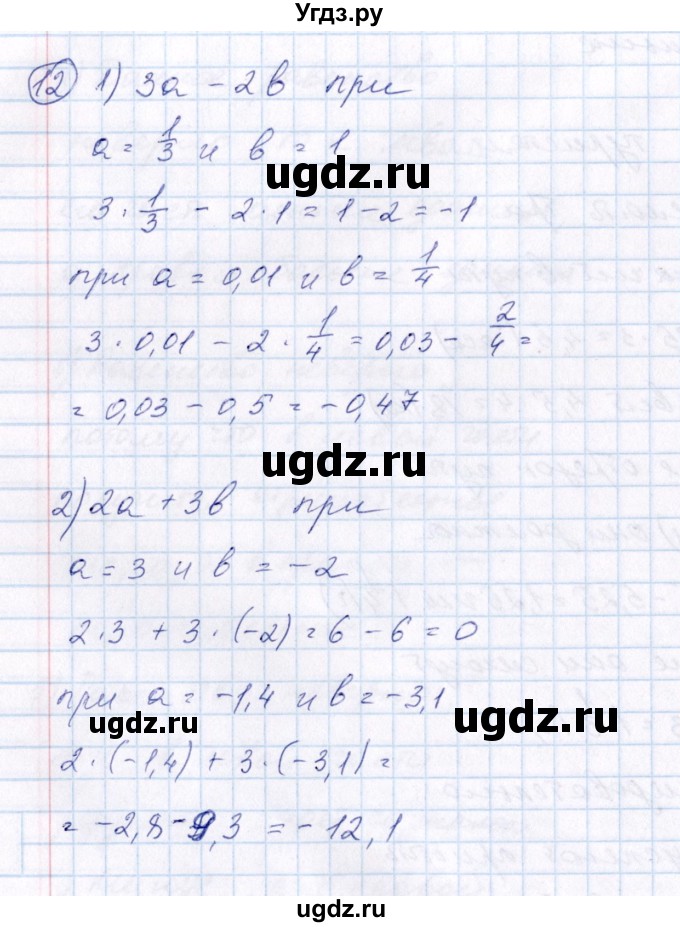 Угдз.ру
12 1) 3a - 2b при
a = 1/3 и b = 1
ugdz.ru
3 · 1/3 - 2 · 1 = 1 - 2 = -1
при a = 0,01 и b = 1/4
3 · 0,01 - 2 · 1/4 = 0,03 - 2/4 =
= 0,03 - 0,5 = -0,47
ugdz.ru
2) 2a + 3b при
a = 3 и b = -2
2 · 3 + 3 · (-2) = 6 - 6 = 0
при a = -1,4 и b = -3,1
ugdz.ru ugdz.ru
2 · (-1,4) + 3 · (-3,1) =
= -2,8 - 9,3 = -12,1
ugdz.ru
ugdz.ru